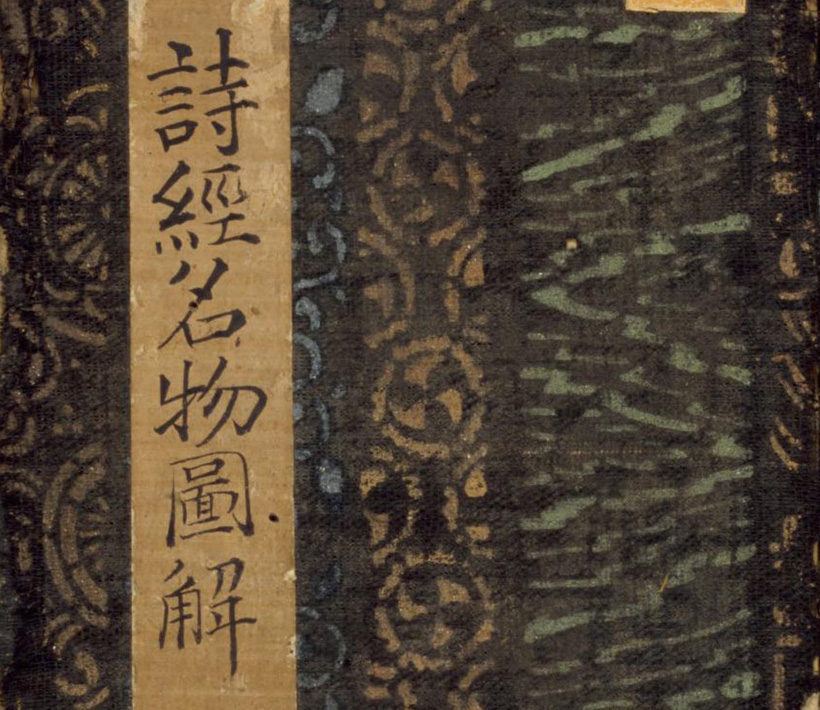 詩經名物圖解